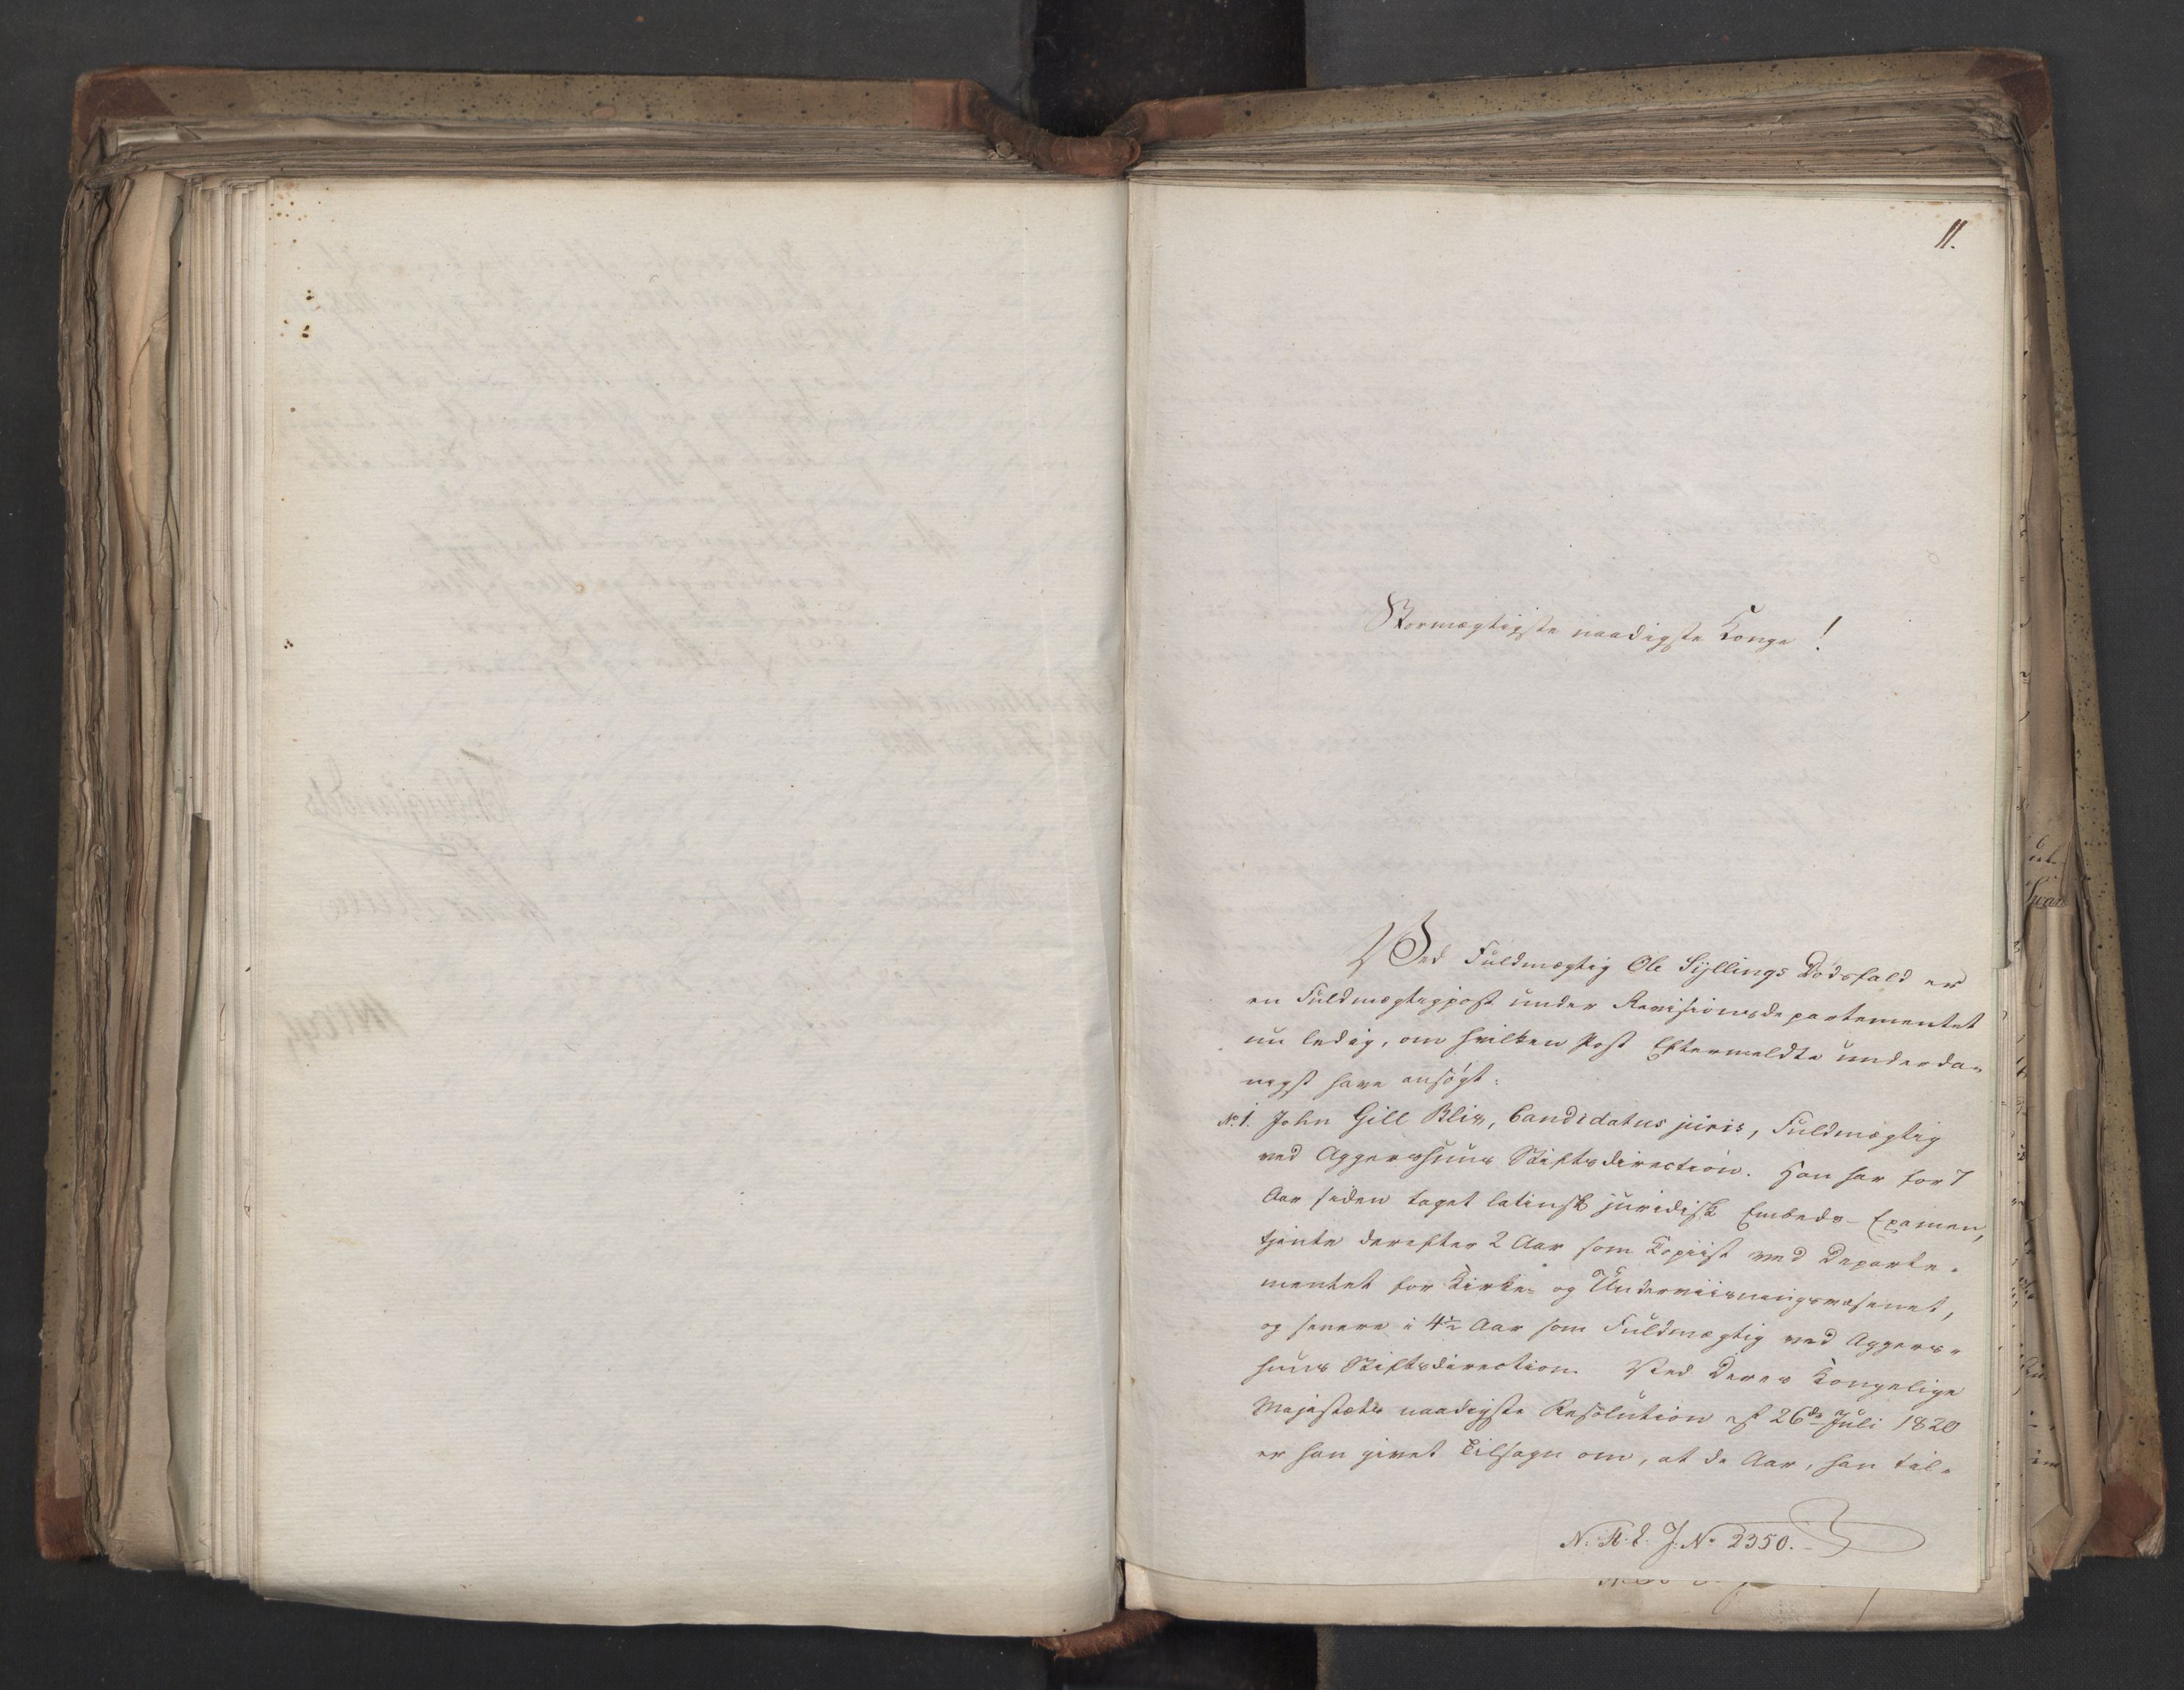 11.
Stormægtigste naadigste Konge!
Ved Fuldmægtig Ole Syllings Dødsfald er
en Fuldmægtigpost under Revisionsdepartementet
nu ledig, om hvilken Post Eftermeldte underda-
nigst have ansøgt:
No 1. John Gill Blix, Candidatus juris, Fuldmægtig
ved Aggershuus Stiftsdirection. Han har for 7
Aar siden taget latinsk juridisk Embeds-Examen,
tjente derefter 2 Aar som Copiist ved Departe-
mentet for Kirke- og Underviisningsvæsenet,
og senere i 4½ Aar som Fuldmægtig ved Aggers-
huus Stiftsdirection. Ved Deres Kongelige
Majestæts naadigste Resolution af 26de Juli 1820
er han givet Tilsagn om, at de Aar, han til-
N: St: E. J. No 2350.